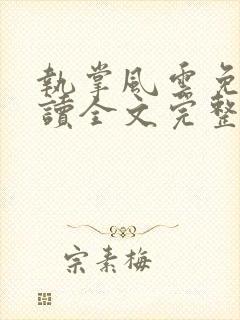 執掌風雲免
讀全文完整
宗素梅